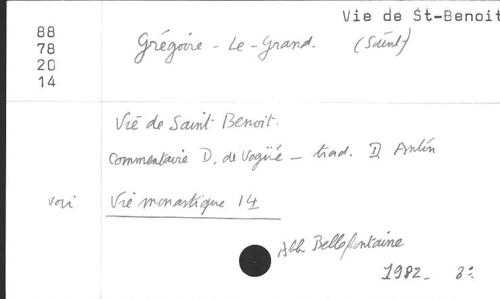 Vie de St-Benoit
88
78
20
14
Grégoire - Le - Grand. (Saint)
Vie de Saint Benoit.
Commentaire D. de Vogüé - trad. D. Antin
voir Vie monastique 14
Abb Bellefontaine
1982_ 8°